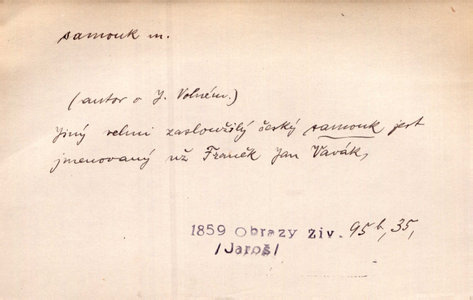 samouk m.
(autor o J. Volném.)
Jiný velmi zasloužilý český samouk jest
jmenovaný už Franěk Jan Vavák,
1859 Obrazy ziv. 95b, 35,
/Jaroš/